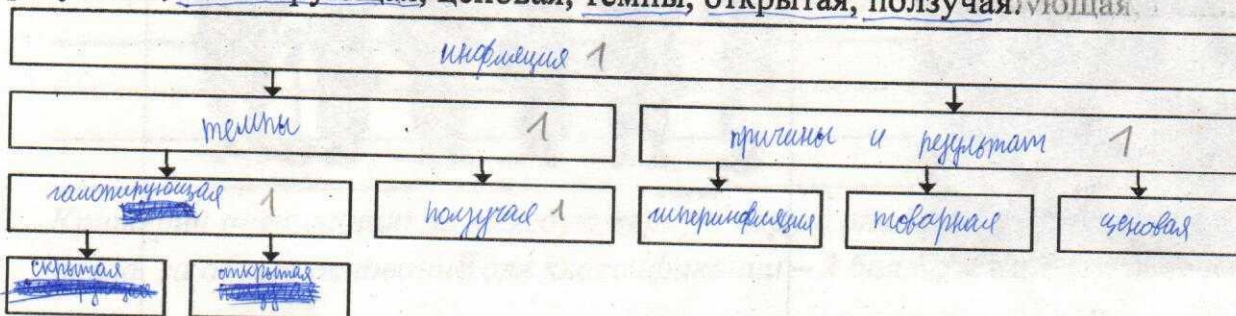 ценовая, темпы, открытая, ползучая.
инфляция 1
темпы 1 причины и результат 1
галопирующая 1 ползучая 1 гиперинфляция товарная ценовая
скрытая открытая